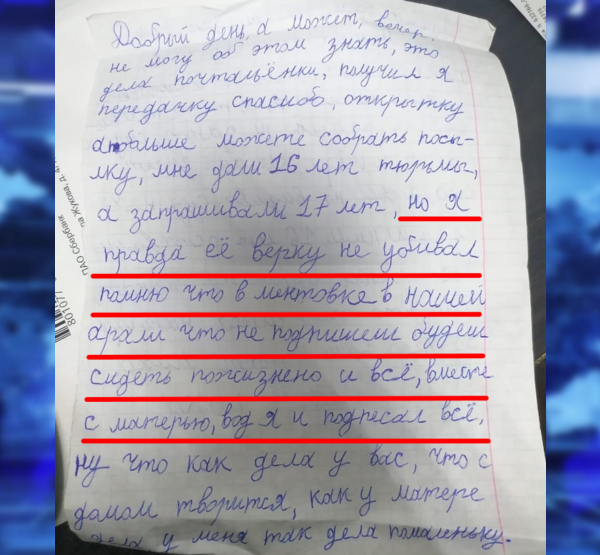 Добрый день, а может, вечер.
не могу об этом знать, это
дела почтальёнки, получил я
передачку спасиоб, открытку
а больше можете собрать посы-
лку, мне дали 16 лет тюрьмы,
а запрашивали 17 лет, но я
правда её верку не убивал
помню что в ментовке в нашей
арали что не подпишеш будеш
сидеть пожизнено и всё, вместе
с матерью, вод я и подпесал всё,
ну что как дела у вас, что с
домом творится, как у матере
дела у меня так дела помаленьку.
ПАО Сбербанк
801077